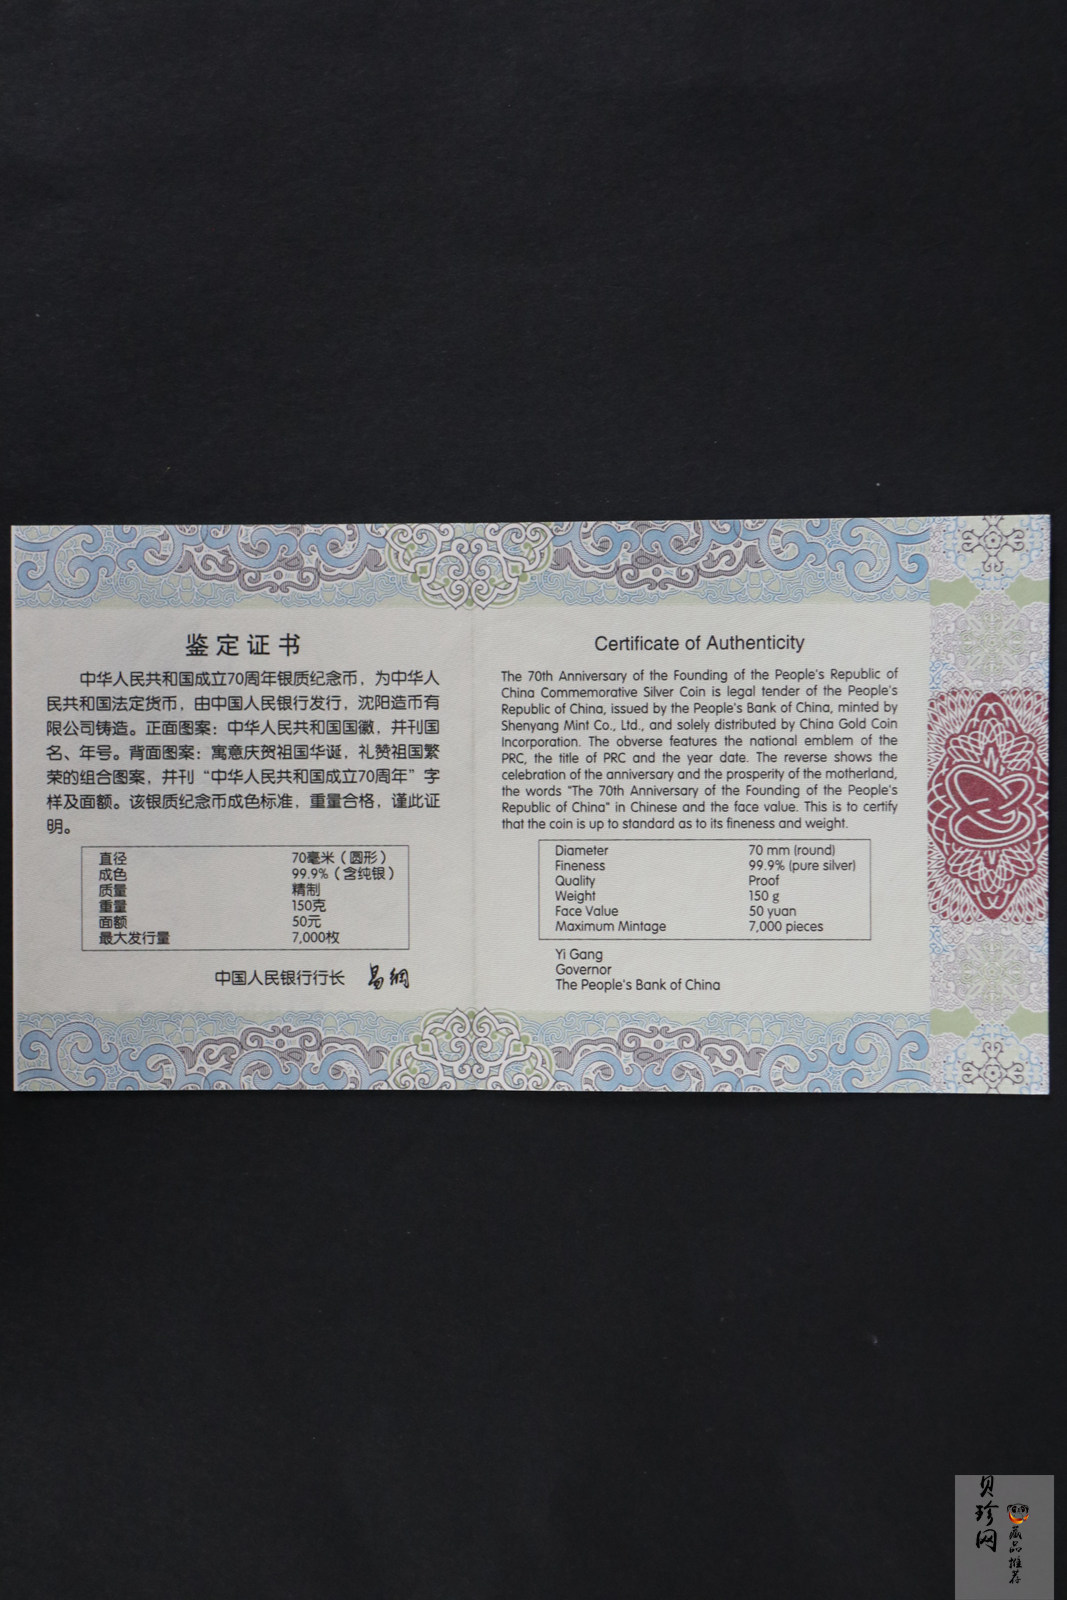 鉴定证书
中华人民共和国成立70周年银质纪念币，为中华人
民共和国法定货币，由中国人民银行发行，沈阳造币有
限公司铸造。正面图案：中华人民共和国国徽，并刊国
名、年号。背面图案：寓意庆贺祖国华诞，礼赞祖国繁
荣的组合图案，并刊“中华人民共和国成立70周年”字
样及面额。该银质纪念币成色标准，重量合格，谨此证
明。
直径 70毫米（圆形）
成色 99.9%（含纯银）
质量 精制
重量 150克
面额 50元
最大发行量 7,000枚
中国人民银行行长 易纲
Certificate of Authenticity
The 70th Anniversary of the Founding of the People's Republic of
China Commemorative Silver Coin is legal tender of the People's
Republic of China, issued by the People's Bank of China, minted by
Shenyang Mint Co., Ltd., and solely distributed by China Gold Coin
Incorporation. The obverse features the national emblem of the
PRC, the title of PRC and the year date. The reverse shows the
celebration of the anniversary and the prosperity of the motherland,
the words "The 70th Anniversary of the Founding of the People's
Republic of China" in Chinese and the face value. This is to certify
that the coin is up to standard as to its fineness and weight.
Diameter 70 mm (round)
Fineness 99.9% (pure silver)
Quality Proof
Weight 150 g
Face Value 50 yuan
Maximum Mintage 7,000 pieces
Yi Gang
Governor
The People's Bank of China
贝珍网
藏品推荐